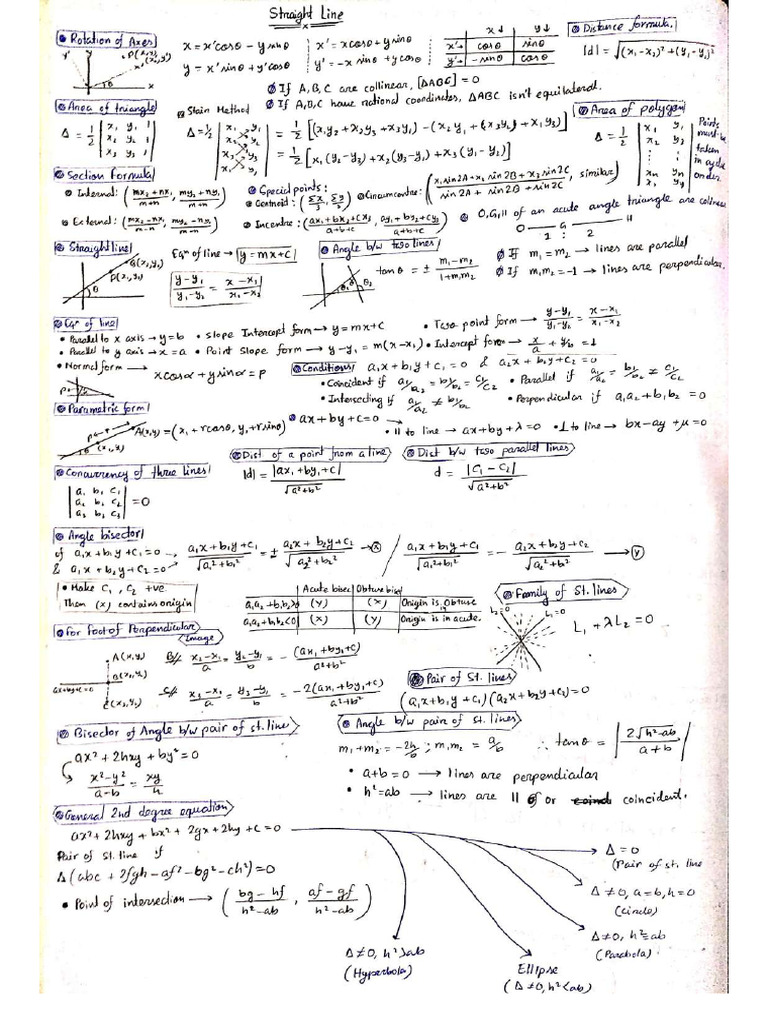 Straight Line
Rotation of Axes
x = x'cosθ - y sinθ
y = x'sinθ + y'cosθ
x' = xcosθ + y sinθ
y' = -x sinθ + y cosθ
x↓ y↓
x'→ cosθ sinθ
y'→ -sinθ cosθ
Distance formula.
|d| = √(x₁-x₂)² + (y₁-y₂)²
If A, B, C are collinear, [ΔABC] = 0
If A,B,C have rational coordinates, ΔABC isn't equilateral.
Area of triangle
Δ = 1/2 | x₁ y₁ 1 |
| x₂ y₂ 1 |
| x₃ y₃ 1 |
Stain Method
Δ = 1/2 | x₁ y₁ |
| x₂ y₂ |
| x₃ y₃ |
| x₁ y₁ |
= 1/2 [(x₁y₂ + x₂y₃ + x₃y₁) - (x₂y₁ + x₃y₂ + x₁y₃)]
= 1/2 [x₁(y₂-y₃) + x₂(y₃-y₁) + x₃(y₁-y₂)]
Area of polygon
Δ = 1/2 | x₁ y₁ |
| x₂ y₂ |
| xₙ yₙ |
| x₁ y₁ |
Points must be taken in cyclic order
Section Formula
Internal: (mx₂+nx₁/m+n, my₂+ny₁/m+n)
External: (mx₂-nx₁/m-n, my₂-ny₁/m-n)
Special points:
Centroid: (Σx/3, Σy/3)
Circumcentre: (x₁sin2A + x₂ sin2B + x₃ sin2C / sin2A + sin2B + sin2C, similar)
Incentre: (ax₁+bx₂+cx₃/a+b+c, ay₁+by₂+cy₃/a+b+c)
O,G,H of an acute angle triangle are colinear
O G H
1 : 2
Straight line
Q(x₂,y₂)
P(x₁,y₁)
θ
Eqⁿ of line → y = mx+c
y-y₁/y₁-y₂ = x-x₁/x₁-x₂
Angle b/w two lines
tanθ = ± m₁-m₂/1+m₁m₂
If m₁ = m₂ → lines are parallel
If m₁m₂ = -1 → lines are perpendicular.
Eqⁿ of line
Parallel to x axis → y=b
Parallel to y axis → x=a
Slope Intercept form → y = mx+c
Point Slope form → y-y₁ = m(x-x₁)
Two point form → y-y₁/y₁-y₂ = x-x₁/x₁-x₂
Intercept form → x/a + y/b = 1
Normal form → xcosα + ysinα = p
Conditions
a₁x + b₁y + c₁ = 0 & a₂x + b₂y + c₂ = 0
Coincident if a₁/a₂ = b₁/b₂ = c₁/c₂
Parallel if a₁/a₂ = b₁/b₂ ≠ c₁/c₂
Intersecting if a₁/a₂ ≠ b₁/b₂
Perpendicular if a₁a₂ + b₁b₂ = 0
Parametric form
A(x,y) = (x₁ + rcosθ, y₁ + rsinθ)
(x₁,y₁)
ax + by + c = 0
|| to line → ax+by+λ=0
⊥ to line → bx-ay+μ=0
Concurrency of three lines
| a₁ b₁ c₁ |
| a₂ b₂ c₂ | = 0
| a₃ b₃ c₃ |
Dist of a point from a line
|d| = |ax₁+by₁+c|/√a²+b²
Dist b/w two parallel lines
d = |C₁-C₂|/√a²+b²
Angle bisector
of a₁x + b₁y + c₁ = 0
& a₁x + b₂y + c₂ = 0
a₁x+b₁y+c₁/√a₁²+b₁² = ± a₂x+b₂y+c₂/√a₂²+b₂² → (x)
a₁x+b₁y+c₁/√a₁²+b₁² = - a₂x+b₂y+c₂/√a₂²+b₂² → (y)
Make c₁, c₂ +ve
Then (x) contains origin
Acute bisec Obtuse bisec
a₁a₂+b₁b₂>0 (y) (x) Origin is Obtuse
a₁a₂+b₁b₂<0 (x) (y) Origin is in acute.
Family of St. lines
L₂=0 L₁=0
L₁ + λL₂ = 0
For Foot of Perpendicular/Image
A(x₁,y₁)
B(x₂,y₂)
C(x₃,y₃)
ax+by+c=0
B/s x₂-x₁/a = y₂-y₁/b = -(ax₁+by₁+c)/a²+b²
C/s x₃-x₁/a = y₃-y₁/b = -2(ax₁+by₁+c)/a²+b²
Pair of St. lines
(a₁x+b₁y+c₁)(a₂x+b₂y+c₂)=0
Bisector of Angle b/w pair of st. line
ax² + 2hxy + by² = 0
x²-y²/a-b = xy/h
Angle b/w pair of st. lines
m₁+m₂ = -2h/b ; m₁m₂ = a/b
∴ tanθ = |2√h²-ab/a+b|
a+b = 0 → lines are perpendicular
h²=ab → lines are || or coincident.
General 2nd degree equation
ax² + 2hxy + bx² + 2gx + 2hy + c = 0
Pair of St. line if
Δ(abc + 2fgh - af² - bg² - ch²) = 0
Point of intersection → (bg-hf/h²-ab, af-gf/h²-ab)
Δ = 0
(Pair of st. line
Δ ≠ 0, a=b, h=0
(Circle)
Δ≠0, h²=ab
(Parabola)
Ellipse
(Δ≠0, h²<ab)
Δ≠0, h²>ab
(Hyperbola)